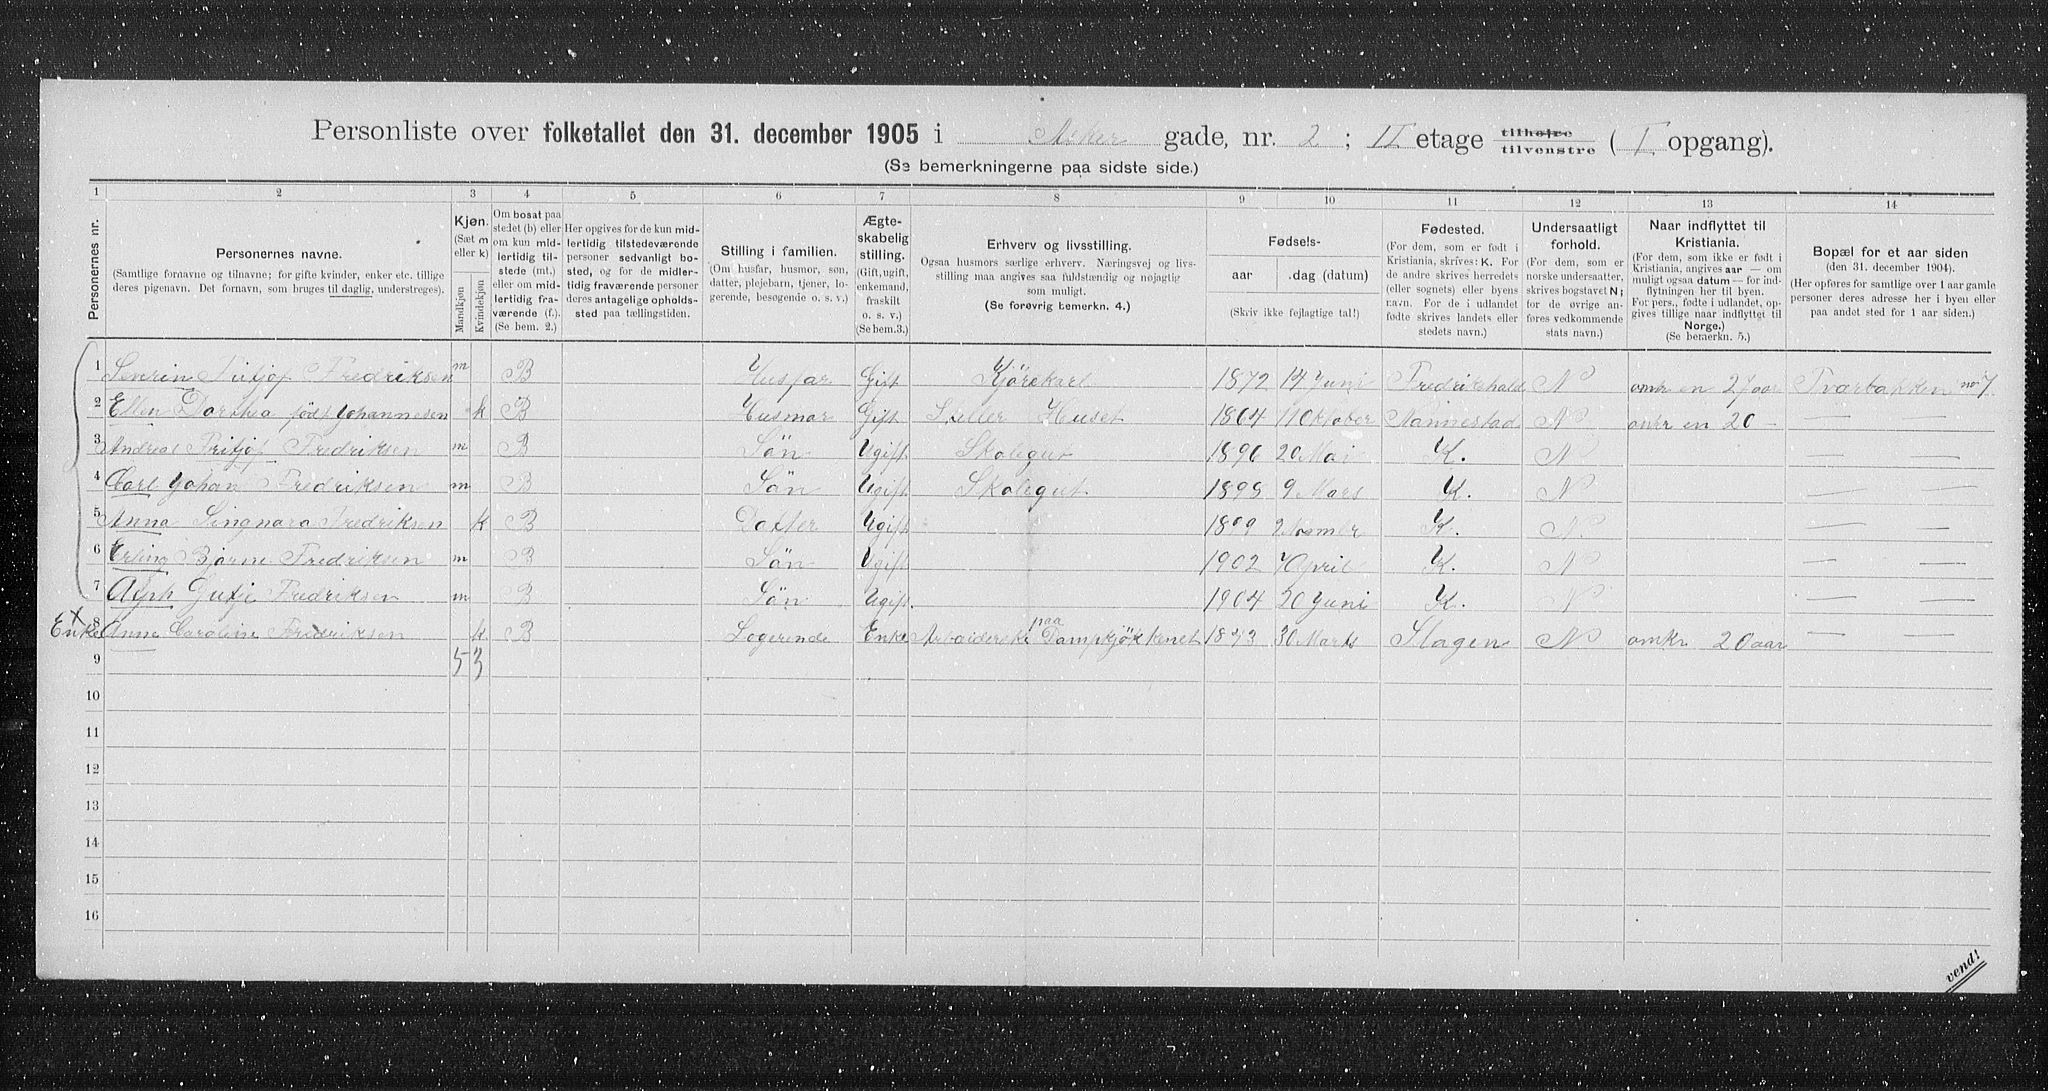 Personliste over folketallet den 31. december 1905 i Asker gade, nr. 2; II etage tilhøjre tilvenstre (I opgang).
(Se bemerkningerne paa sidste side.)
1 2 3 4 5 6 7 8 9 10 11 12 13 14
Personernes nr.
Personernes navne.
(Samtlige fornavne og tilnavne; for gifte kvinder, enker etc. tillige
deres pigenavn. Det fornavn, som bruges til daglig, understreges).
Kjøn.
(Sæt m
eller k)
Mandkjøn
Kvindekjøn
Om bosat paa
stedet (b) eller
om kun mid-
lertidig til-
stede (mt.)
eller om mid-
lertidig fra-
værende (f.)
(Se bem. 2.)
Her opgives for de kun mid-
lertidig tilstedeværende
personer sedvanlig bo-
sted, og for de midler-
tidig fraværende personer
deres antagelige opholds-
sted paa tællingstiden.
Stilling i familien.
(Om husfar, husmor, søn,
datter, plejebarn, tjener, lo-
gerende, besøgende o. s. v.)
Ægte-
skabelig
stilling.
(Gift, ugift,
enkemand,
fraskilt
o. s. v.)
(Se bem.3.)
Erhverv og livsstilling.
Ogsaa husmors særlige erhverv. Næringsvej og livs-
stilling maa angives saa fuldstændig og nøjagtig
som muligt.
(Se forøvrig bemerkn. 4.)
Fødsels-
aar
dag (datum)
(Skriv ikke fejlagtige tal!)
Fødested.
(For dem, som er født i
Kristiania, skrives: K. For
de andre skrives herredets
(eller sognets) eller byens
navn. For de i udlandet
fødte skrives landets eller
stedets navn.)
Undersaatligt
forhold.
(For dem, som er
norske undersaatter,
skrives bogstavet N;
for de øvrige an-
føres vedkommende
stats navn.)
Naar indflyttet til
Kristiania.
(For dem, som ikke er født i
Kristiania, angives aar — om
muligt ogsaa datum — for ind-
flytningen her til byen.
For pers., fødte i udlandet, op-
gives tillige naar indflyttet til
Norge.)
(Se bemerkn. 5.)
Bopæl for et aar siden
(den 31. december 1904.)
(Her opføres for samtlige over 1 aar gamle
personer deres adresse her i byen eller
paa andet sted for 1 aar siden.)
1 Severin Fritjof Fredriksen m B Husfar Gift Kjörekarl 1872 14 Juni Fredrikshald N omkr en 27 aar Tværbakken no 7
2 Ellen Dorthea født Johannesen k B Husmor Gift Steller Huset 1864 11 Oktober Nannestad N omkr en 20 — — —
3 Andreas Fritjof Fredriksen m B Sön Ugift Skolegut 1896 20 Mai K. N — —
4 Carl Johan Fredriksen m B Sön Ugift Skolegut 1898 9 Mars K. N — —
5 Anna Singnora Fredriksen k B Dotter Ugift 1899 2 K. N. — —
6 Erling Bjarne Fredriksen m B Sön Ugift 1902 7 April K. N — —
7 Fredriksen m B Sön Ugift. 1904 20 Juni K. N — —
Enke X 8 Anne Caroline Fredriksen k B Logerende Enke Arbaiderske paa Dampkjökkenet 1843 30 Marts Slagen N omkr 20 aar — —
9 5 3
10
11
12
13
14
15
16
vend!